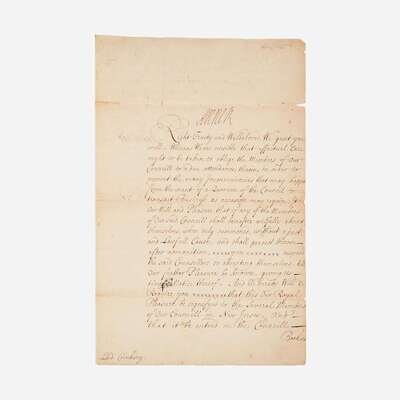 Anne R
Right Trusty and Wellbeloved, We greet you
well. Whereas We are sensible that effectual Care
ought to be taken to oblige the Members of Our
Councill to a due attendance therein, in order to
prevent the many Inconveniencies that may happen
from the want of a Quorum of the Councill to
transact Business as occasion may require. It is
Our Will and Pleasure that if any of the Members
of Our said Councill shall hereafter wilfully absent
themselves when duly summoned, without a just
and Lawfull Cause, and shall persist therein
after admonition, you suspend
the said Councillors so absenting themselves till
Our further Pleasure be known, giving us
notice thereof. And We hereby Will &
Require you that this Our Royal
Pleasure be signified to the several Members
of Our Councill in New Jersey, and
that it be entred in the Councill
Books
Lord Cornbury.